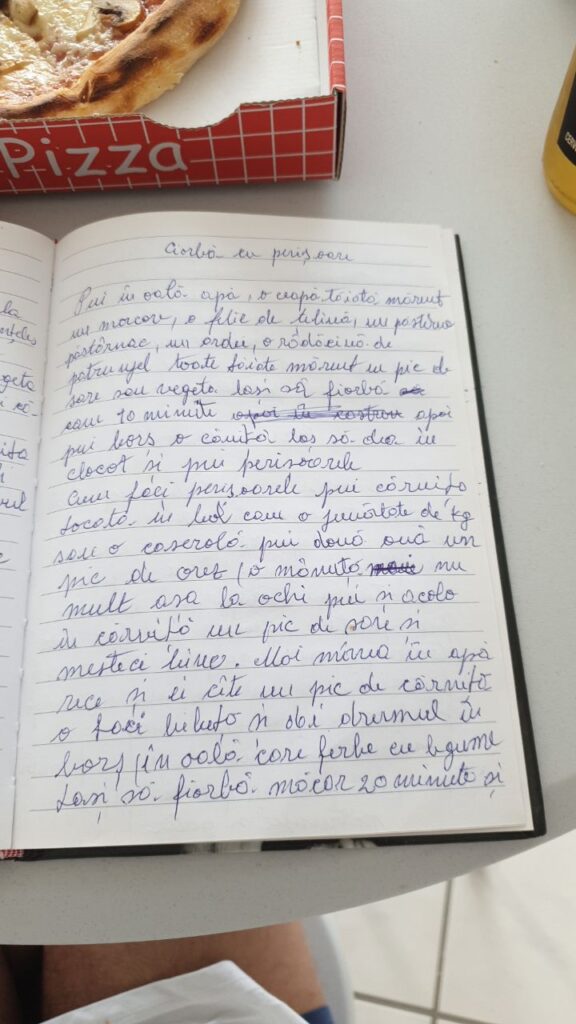 Pizza
Ciorbă cu perișoare
Pui în oală apă, o ceapă tăiată mărunt
un morcov, o felie de telină, un păstîrna
păstârnac, un ardei, o rădăcină de
patrunjel toate tăiate mărunt un pic de
sare sau vegeta lasi să fiarbă
cam 10 minute apoi în castron apoi
pui borș o cănită las să dea în
clocot si pui perisoarele
Cum faci perisoarele pui cărnița
tocată în bol cam o jumătate de kg
sau o caserolă pui două ouă un
pic de orez (o mânuță nu
mult asa la ochi pui si acolo
în cărniță un pic de sare si
mesteci bine. Moi mâna în apă
rece si ei cîte un pic de cărniță
o faci biluță si îi dai drumul în
borș (în oală care ferbe cu legume
Lasi să fiarbă măcar 20 minute și
la
geta